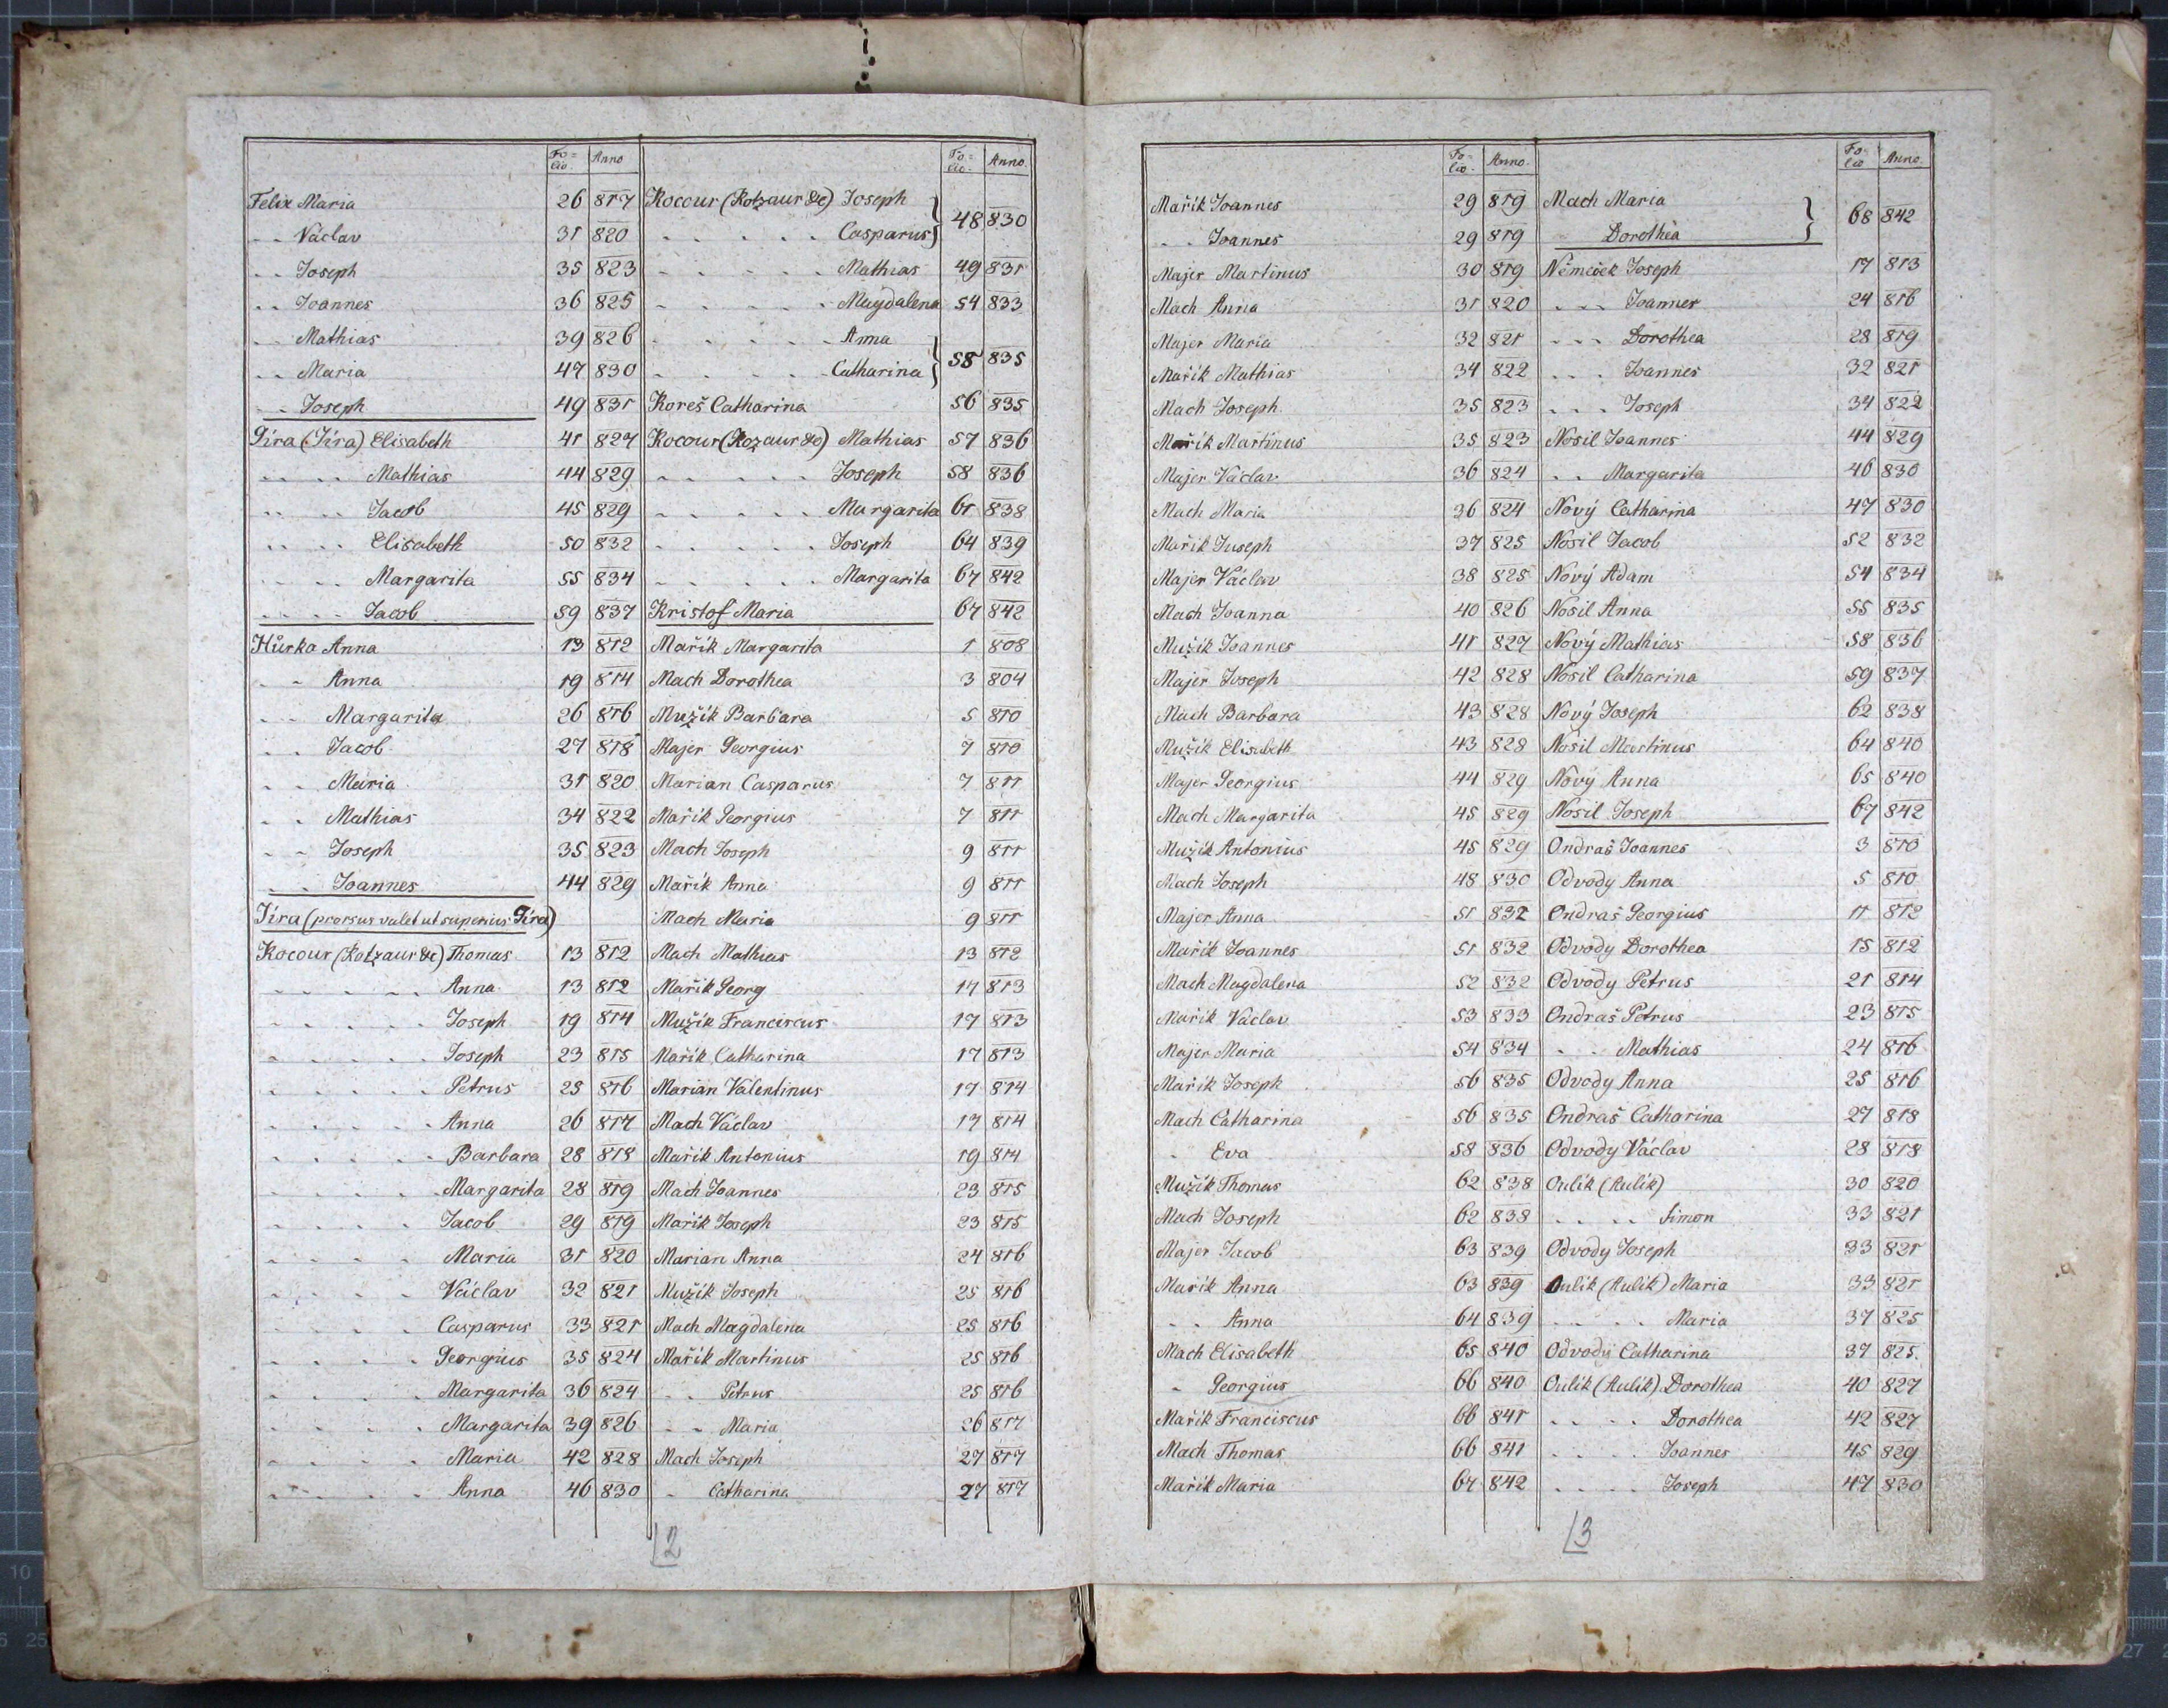 Fo=
lio.
Anno
Felix Maria 26 817
- - Václav 31 820
- - Joseph 35 823
- - Joannes 36 825
- - Mathias 39 826
- - Maria 47 830
- - Joseph 49 831
Gíra (Jíra) Elisabeth 41 827
- - - - Mathias 44 829
- - - - Jacob 45 829
- - - - Elisabeth 50 832
- - - - Margarita 55 834
- - - - Jacob 59 837
Hůrka Anna 13 812
- - Anna 19 814
- - Margarita 26 816
- - Jacob 27 818
- - Maria 31 820
- - Mathias 34 822
- - Joseph 35 823
- - Joannes 44 829
Jíra (prorsus valet ut superius Gíra)
Kocour (Kotzaur &c) Thomas 13 812
- - - - - Anna 13 812
- - - - - Joseph 19 814
- - - - - Joseph 23 815
- - - - - Petrus 25 816
- - - - - Anna 26 817
- - - - - Barbara 28 818
- - - - - Margarita 28 819
- - - - - Jacob 29 819
- - - - - Maria 31 820
- - - - - Václav 32 821
- - - - - Casparus 33 821
- - - - - Georgius 35 824
- - - - - Margarita 36 824
- - - - - Margarita 39 826
- - - - - Maria 42 828
- - - - - Anna 46 830
Fo=
lio.
Anno.
Kocour (Kotzaur &c) Joseph
- - - - - Casparus } 48 830
- - - - - Mathias 49 831
- - - - - Magdalena 54 833
- - - - - Anna
- - - - - Catharina } 55 835
Koreš Catharina 56 835
Kocour (Kozaur &c) Mathias 57 836
- - - - - Joseph 58 836
- - - - - Margarita 61 838
- - - - - Joseph 64 839
- - - - - Margarita 67 842
Kristof Maria 67 842
Mařík Margarita 1 808
Mach Dorothea 3 804
Mužík Barbara 5 810
Majer Georgius 7 810
Marian Casparus 7 811
Mařík Georgius 7 811
Mach Joseph 9 811
Mařík Anna 9 811
Mach Maria 9 811
Mach Mathias 13 812
Mařík Georg 17 813
Mužík Franciscus 17 813
Mařík Catharina 17 813
Marian Valentinus 17 814
Mach Václav 17 814
Mařík Antonius 19 814
Mach Joannes 23 815
Mařík Joseph 23 815
Marian Anna 24 816
Mužík Joseph 25 816
Mach Magdalena 25 816
Mařík Martinus 25 816
- - Petrus 25 816
- - Maria 26 817
Mach Joseph 27 817
- Catharina 27 817
2
Fo=
lio.
Anno.
Mařík Joannes 29 819
- - Joannes 29 819
Majer Martinus 30 819
Mach Anna 31 820
Majer Maria 32 821
Mařík Mathias 34 822
Mach Joseph 35 823
Mařík Martinus 35 823
Majer Václav 36 824
Mach Maria 36 824
Mařík Joseph 37 825
Majer Václav 38 825
Mach Joanna 40 826
Mužík Joannes 41 827
Majer Joseph 42 828
Mach Barbara 43 828
Mužík Elisabeth 43 828
Majer Georgius 44 829
Mach Margarita 45 829
Mužík Antonius 45 829
Mach Joseph 48 830
Majer Anna 51 832
Mařík Joannes 51 832
Mach Magdalena 52 832
Mařík Václav 53 833
Majer Maria 54 834
Mařík Joseph 56 835
Mach Catharina 56 835
- Eva 58 836
Mužík Thomas 62 838
Mach Joseph 62 838
Majer Jacob 63 839
Mařík Anna 63 839
- - Anna 64 839
Mach Elisabeth 65 840
- Georgius 66 840
Mařík Franciscus 66 841
Mach Thomas 66 841
Mařík Maria 67 842
Fo=
lio
Anno.
Mach Maria
- Dorothea } 68 842
Němeček Joseph 17 813
- - - Joannes 24 816
- - - Dorothea 28 819
- - - Joannes 32 821
- - - Joseph 34 822
Nosil Joannes 44 829
- - Margarita 46 830
Nový Catharina 47 830
Nosil Jacob 52 832
Nový Adam 54 834
Nosil Anna 55 835
Nový Mathias 58 836
Nosil Catharina 59 837
Nový Joseph 62 838
Nosil Martinus 64 840
Nový Anna 65 840
Nosil Joseph 67 842
Ondraš Joannes 3 810
Odvody Anna 5 810
Ondraš Georgius 11 812
Odvody Dorothea 15 812
Odvody Petrus 21 814
Ondraš Petrus 23 815
- - Mathias 24 816
Odvody Anna 25 816
Ondraš Catharina 27 818
Odvody Václav 28 818
Oulík (Aulík) 30 820
- - - - Simon 33 821
Odvody Joseph 33 821
Oulík (Aulík) Maria 33 821
- - - - Maria 37 825
Odvody Catharina 37 825.
Oulík (Aulík) Dorothea 40 827
- - - - Dorothea 42 827
- - - - Joannes 45 829
- - - - Joseph 47 830
3